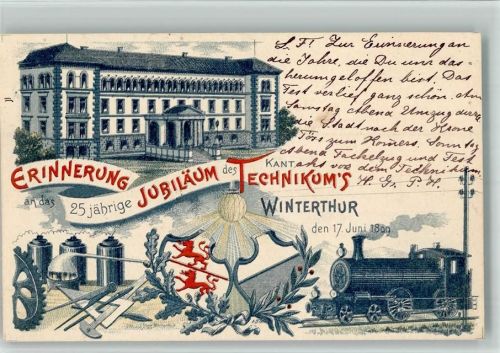 S. F! Zur Erinnerung an
die Jahre, die Du uns das-
herumgeloffen bist. Das
Fest verlief ganz schön. Am
Samstag Abend Umzug durch
die Stadt nach der Krone
Töss zum Komers. Sonntag
Abend Fackelzug und Fest
akt vor dem Technikum.
H. G. P. H.
ERINNERUNG
an das 25 jährige JUBILÄUM des KANT. TECHNIKUM'S
WINTERTHUR
den 17. Juni 1899